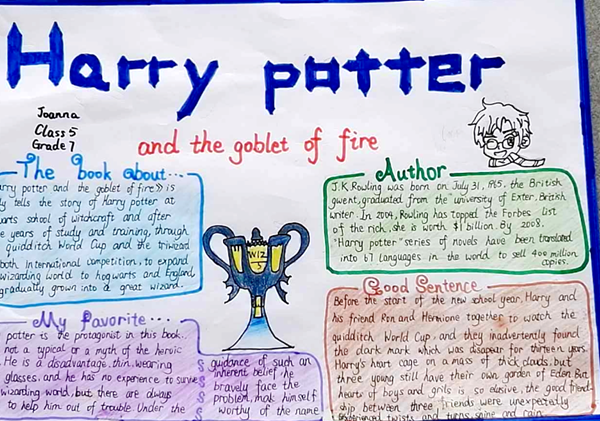 Harry potter
Joanna
Class 5
Grade 7
and the goblet of fire
The book about...
rry potter and the goblet of fire》is
ly tells the story of Harry potter at
arts school of witchcraft and after
e years of study and training, through
quidditch World Cup and the triwizard
both International competition, to expand
wizarding world to hogwarts and England,
gradually grown into a great wizard.
WIZ
Author
J.K.Rowling was born on July 31, 1965, the British
gwent, graduated from the university of Exter, British
writer. In 2004, Rowling has topped the Forbes list
of the rich, she is worth $1 billion. By 2008.
"Harry potter" series of novels have been translated
into 67 languages in the world to sell 400 million
copies.
My Favorite....
potter is the protagonist in this book.
not a typical or a myth of the heroic
He is a disadvantage, thin, wearing
glasses, and he has no experience to survive
wizarding world, but there are always
to help him out of trouble. Under the
guidance of such an
inherent belief, he
bravely face the
problem, make himself
worthy of the name
Good Sentence
Before the start of the new school year, Harry and
his friend Ron and Hermione together to watch the
quidditch World Cup, and they inadvertently found
the dark mark which was disappear for thirteen years.
Harry's heart cage on a mass of thick clouds, but
three young still have their own garden of Eden. But
hearts of boys and grils is so elusive, the good friend-
ship between three friends were unexpectedly
experienced twists and turns, shine and rain.